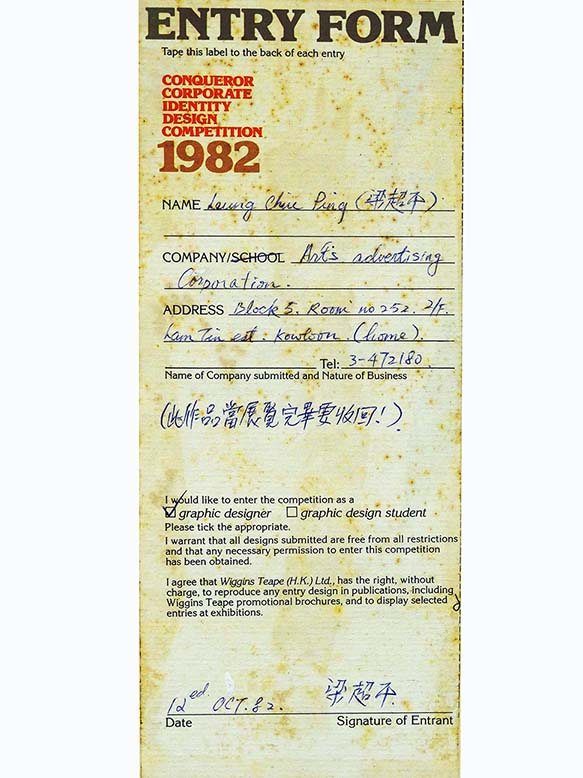 ENTRY FORM
Tape this label to the back of each entry
CONQUEROR
CORPORATE
IDENTITY
DESIGN
COMPETITION
1982
NAME Leung Chiu Ping (梁超平)
COMPANY/SCHOOL Art's advertising
Corporation.
ADDRESS Block 5. Room no 252. 2/F.
Lam Tin est. Kowloon. (home).
Tel: 3-472180.
Name of Company submitted and Nature of Business
(此作品當展覽完畢要收回!)
I would like to enter the competition as a
☑ graphic designer ☐ graphic design student
Please tick the appropriate.
I warrant that all designs submitted are free from all restrictions
and that any necessary permission to enter this competition
has been obtained.
I agree that Wiggins Teape (H.K.) Ltd., has the right, without
charge, to reproduce any entry design in publications, including
Wiggins Teape promotional brochures, and to display selected
entries at exhibitions.
12ed OCT. 82. 梁超平
Date Signature of Entrant